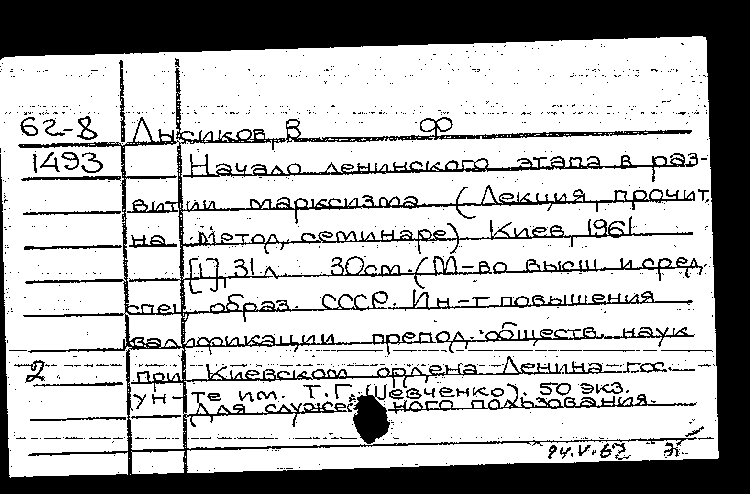 62-8 Лысиков, В Ф
1493 Начало ленинского этапа в раз-
витии марксизма (Лекция, прочит.
на метод. семинаре) Киев, 1961
[1], 31 л. 30см. (М-во высш. и сред.
спец. образ. СССР. Ин-т повышения
квалификации препод. обществ. наук
2 при Киевском ордена Ленина гос.
ун-те им. Т.Г. Шевченко). 50 экз.
Для служебного пользования.
62